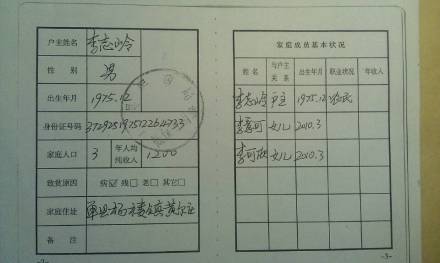 户主姓名 李志岭
性别 男
出生年月 1975.12
身份证号码
家庭人口 3 年人均纯收入 1200
致贫原因 病☑ 残□ 老□ 其它□
家庭住址 单县杨楼镇黄尔庄
备注
家庭成员基本状况
姓名 与户主关系 出生年月 职业状况 年收入
李志岭 户主 1975.12 农民
李 可 女儿 2010.3
李可欣 女儿 2010.3